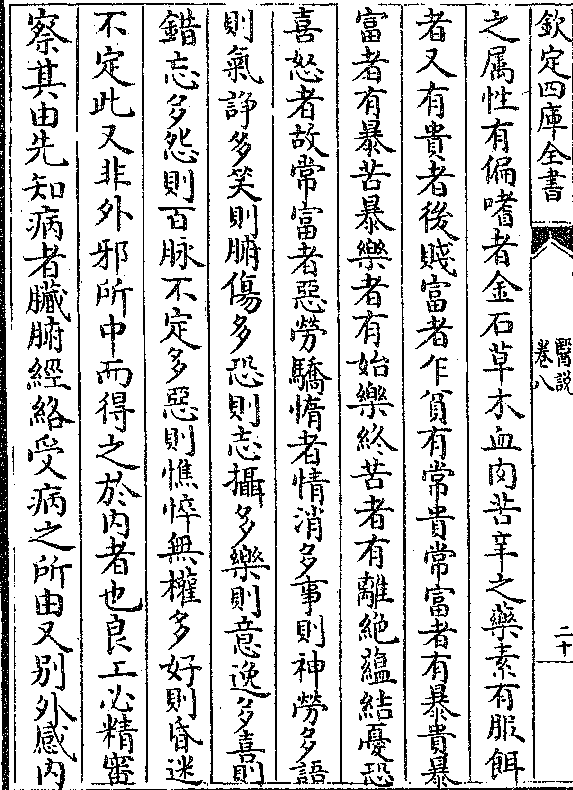 欽定四庫全書
醫説
卷八
二十
之属性有偏嗜者金石草木血肉苦辛之藥素有服餌
者又有貴者後賤富者乍貧有常貴常富者有暴貴暴
富者有暴苦暴樂者有始樂終苦者有離絶藴結憂恐
喜怒者故常富者惡勞驕惰者情消多事則神勞多語
則氣諍多笑則腑傷多恐則志攝多樂則意逸多喜則
錯忘多怨則百脉不定多惡則憔悴無權多好則昏迷
不定此又非外邪所中而得之於内者也良工必精審
察其由先知病者臟腑經絡受病之所由又别外感内